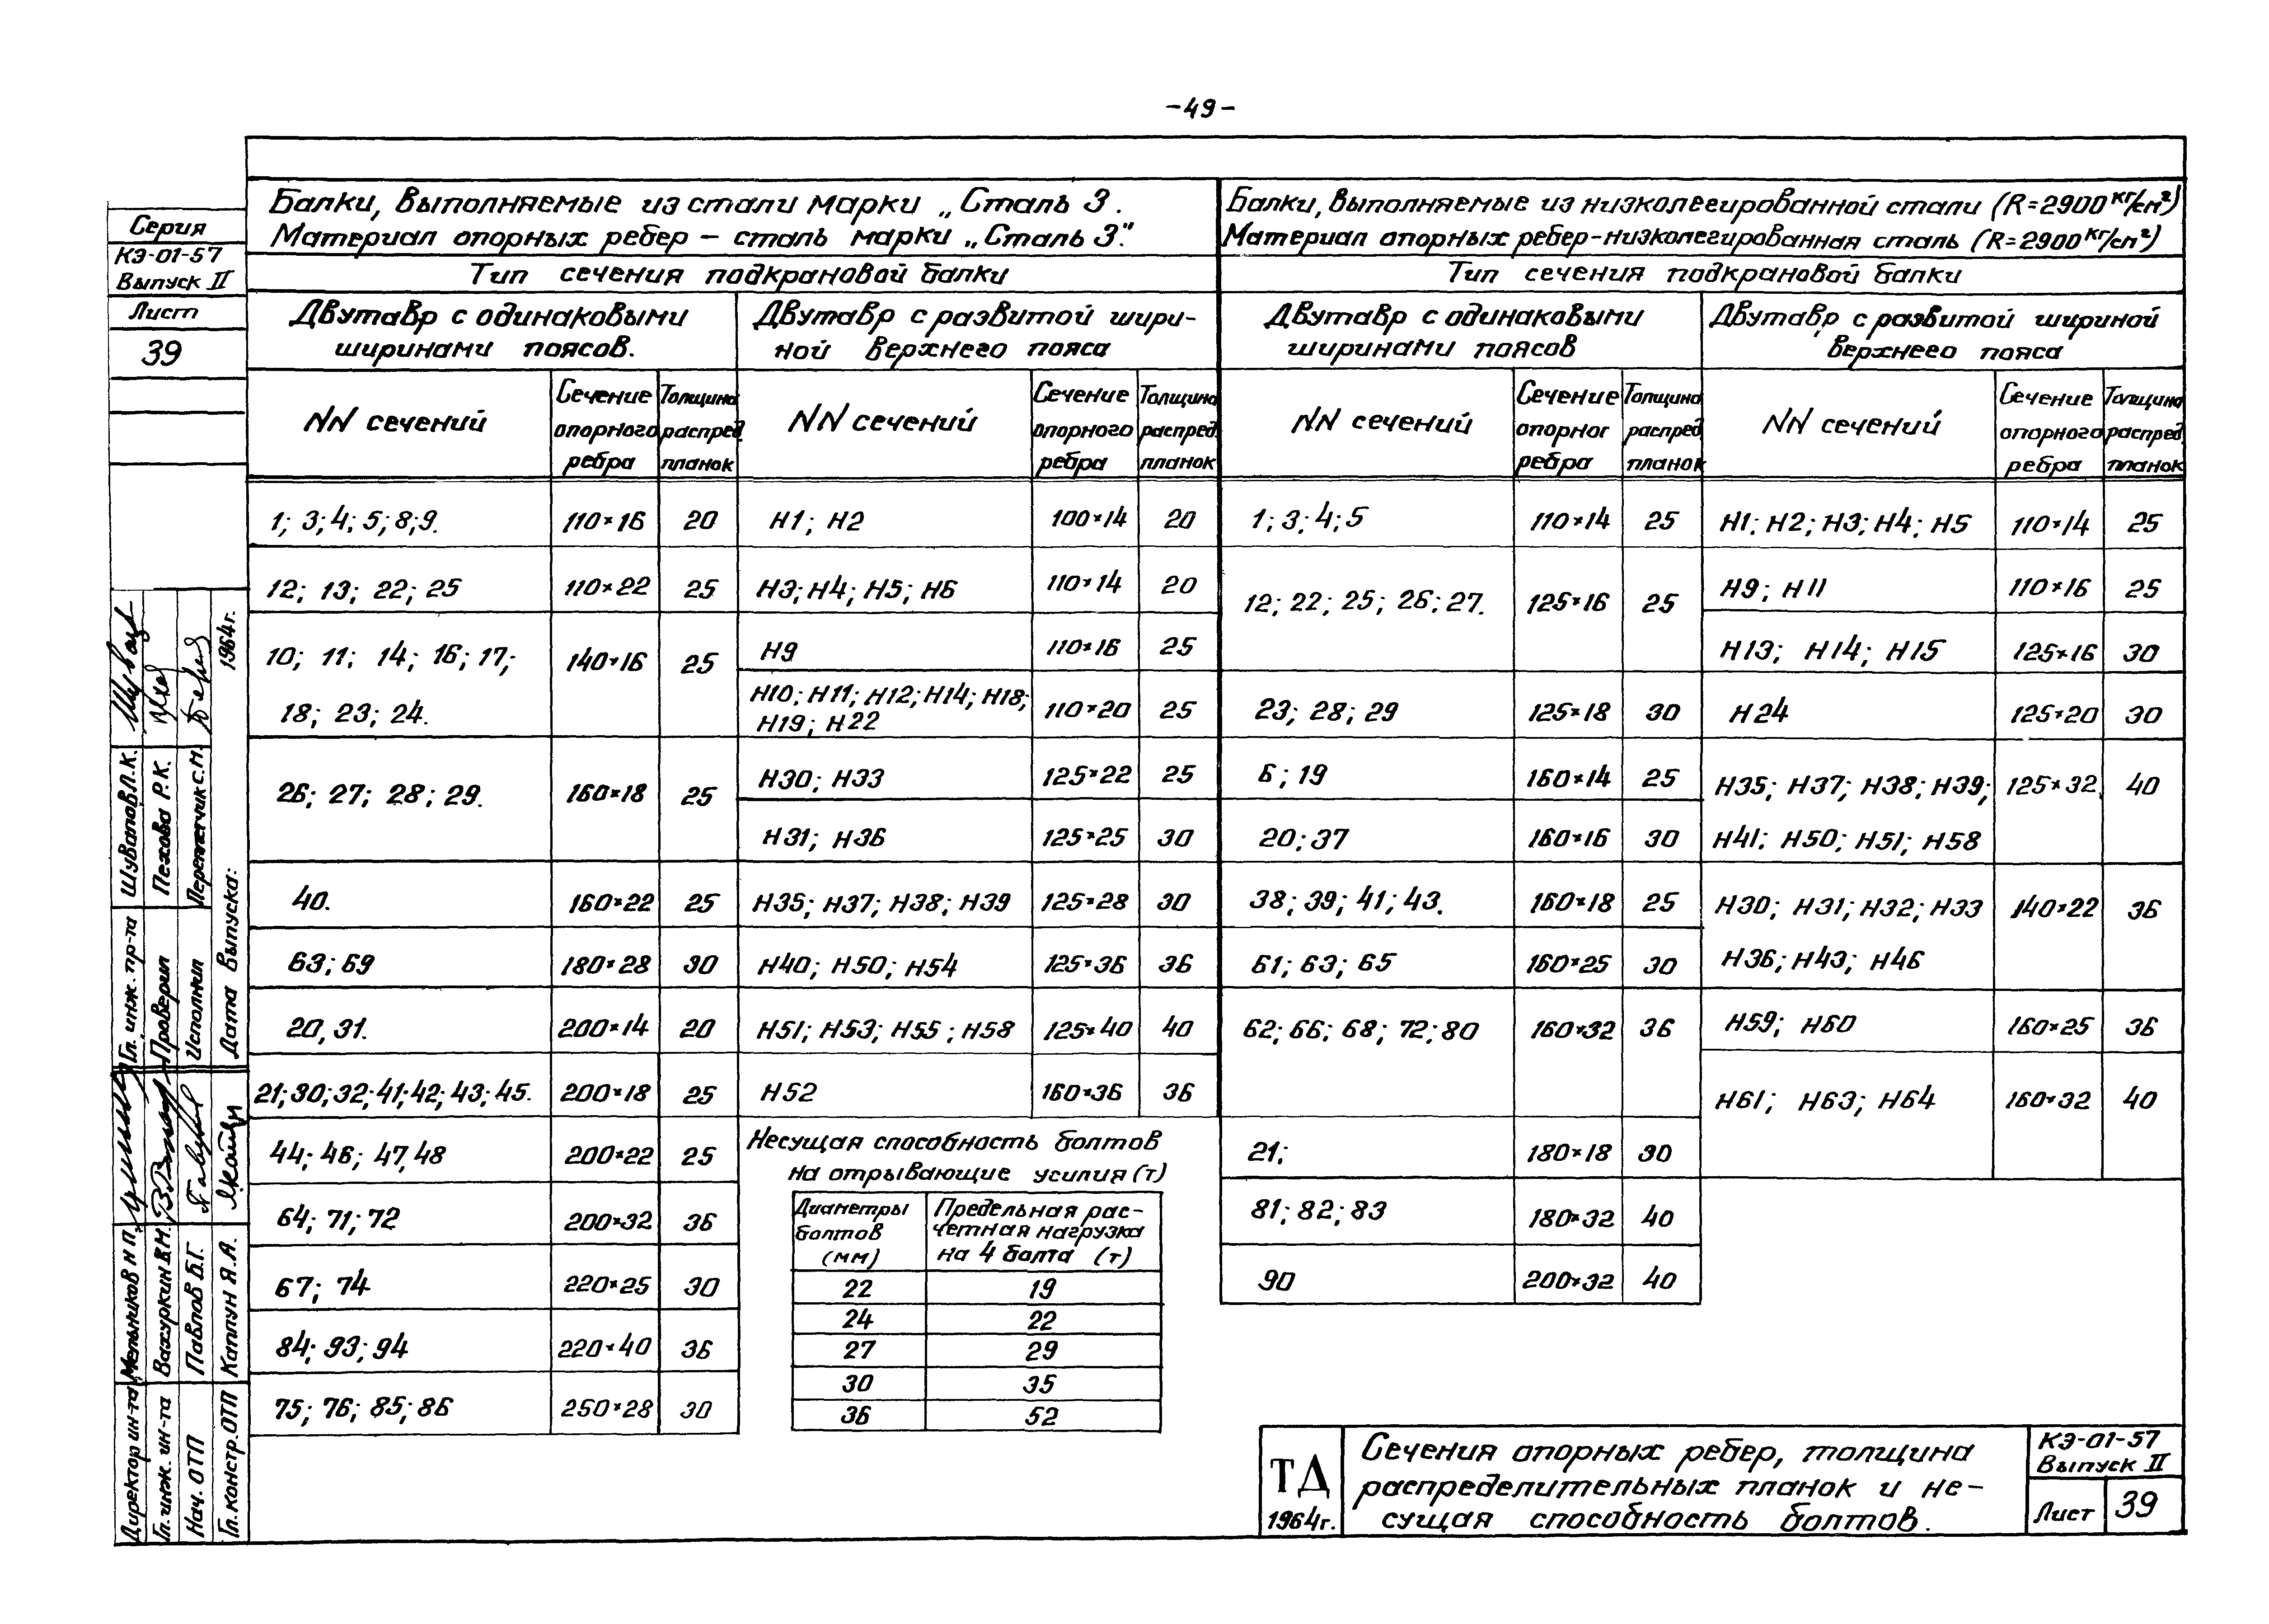 -49-
Серия
КЭ-01-57
Выпуск II
Лист
39
Балки, выполняемые из стали марки „Сталь 3.
Материал опорных ребер – сталь марки „Сталь 3."
Тип сечения подкрановой балки
Двутавр с одинаковыми
ширинами поясов.
Двутавр с развитой шири-
ной верхнего пояса
NN сечений
Сечение опорного ребра
Толщина распред. планок
NN сечений
Сечение опорного ребра
Толщина распред. планок
1; 3; 4; 5; 8; 9. 110×16 20
12; 13; 22; 25 110×22 25
10; 11; 14; 16; 17; 140×16 25
18; 23; 24.
26; 27; 28; 29. 160×18 25
40. 160×22 25
63; 69 180×28 30
20, 31. 200×14 20
21; 30; 32; 41; 42; 43; 45. 200×18 25
44; 46; 47, 48 200×22 25
64; 71; 72 200×32 36
67; 74 220×25 30
84; 93; 94 220×40 36
75; 76; 85; 86 250×28 30
Н1; Н2 100×14 20
Н3; Н4; Н5; Н6 110×14 20
Н9 110×16 25
Н10; Н11; Н12; Н14; Н18; 110×20 25
Н19; Н22
Н30; Н33 125×22 25
Н31; Н36 125×25 30
Н35; Н37; Н38; Н39 125×28 30
Н40; Н50; Н54 125×36 36
Н51; Н53; Н55; Н58 125×40 40
Н52 160×36 36
Несущая способность болтов
на отрывающие усилия (т)
Диаметры болтов (мм)
Предельная рас-
четная нагрузка
на 4 болта (т)
22 19
24 22
27 29
30 35
36 52
Балки, выполняемые из низколегированной стали (R=2900 кг/см²)
Материал опорных ребер-низколегированная сталь (R=2900 кг/см²)
Тип сечения подкрановой балки
Двутавр с одинаковыми
ширинами поясов
Двутавр с развитой шириной
верхнего пояса
NN сечений
Сечение опорног ребра
Толщина распред. планок
NN сечений
Сечение опорного ребра
Толщина распред. планок
1; 3; 4; 5 110×14 25
12; 22; 25; 26; 27. 125×16 25
23; 28; 29 125×18 30
6; 19 160×14 25
20; 37 160×16 30
38; 39; 41; 43. 160×18 25
61; 63; 65 160×25 30
62; 66; 68; 72; 80 160×32 36
21; 180×18 30
81; 82; 83 180×32 40
90 200×32 40
Н1; Н2; Н3; Н4; Н5 110×14 25
Н9; Н11 110×16 25
Н13; Н14; Н15 125×16 30
Н24 125×20 30
Н35; Н37; Н38; Н39; 125×32 40
Н41; Н50; Н51; Н58
Н30; Н31; Н32; Н33 140×22 36
Н36; Н43; Н46
Н59; Н60 160×25 36
Н61; Н63; Н64 160×32 40
ТД
1964г.
Сечения опорных ребер, толщина
распределительных планок и не-
сущая способность болтов.
КЭ-01-57
Выпуск II
Лист 39
Гл. инж. пр-та Шувалов Л.К.
Проверил Пехова Р.К.
Исполнил С.М.
Дата выпуска: 1964г.
Директор ин-та Мельников Н.П.
Гл. инж. ин-та Вахуркин В.М.
Нач. ОТП Павлов Б.Г.
Гл. констр. ОТП Каплун Я.А.